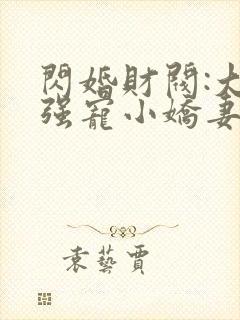 閃婚財閥:大
强寵小嬌妻
袁藝賈